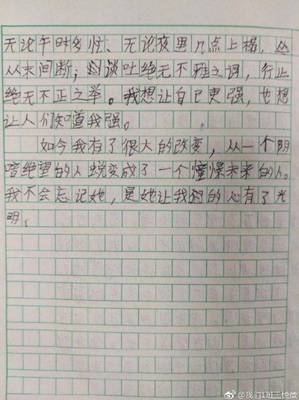 无论午时多忙、无论夜里几点上榻，丛
从未间断；谈吐绝无不雅之词，行止
绝无不正之举。我想让自己更强，也想
让人们知道我强。
如今我有了很大的改变，从一个阴
暗绝望的人蜕变成了一个憧憬未来的人。
我不会忘记她，是她让我的心有了光
明。